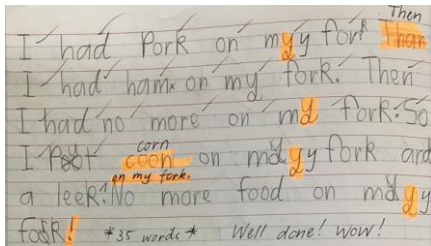 Then
I had Pork on my fork. Than
I had ham on my fork. Then
I had no more on my fork. So
corn
I put coon on my fork and
on my fork.
a leek. No more food on my
fork! *35 words* Well done! Wow!